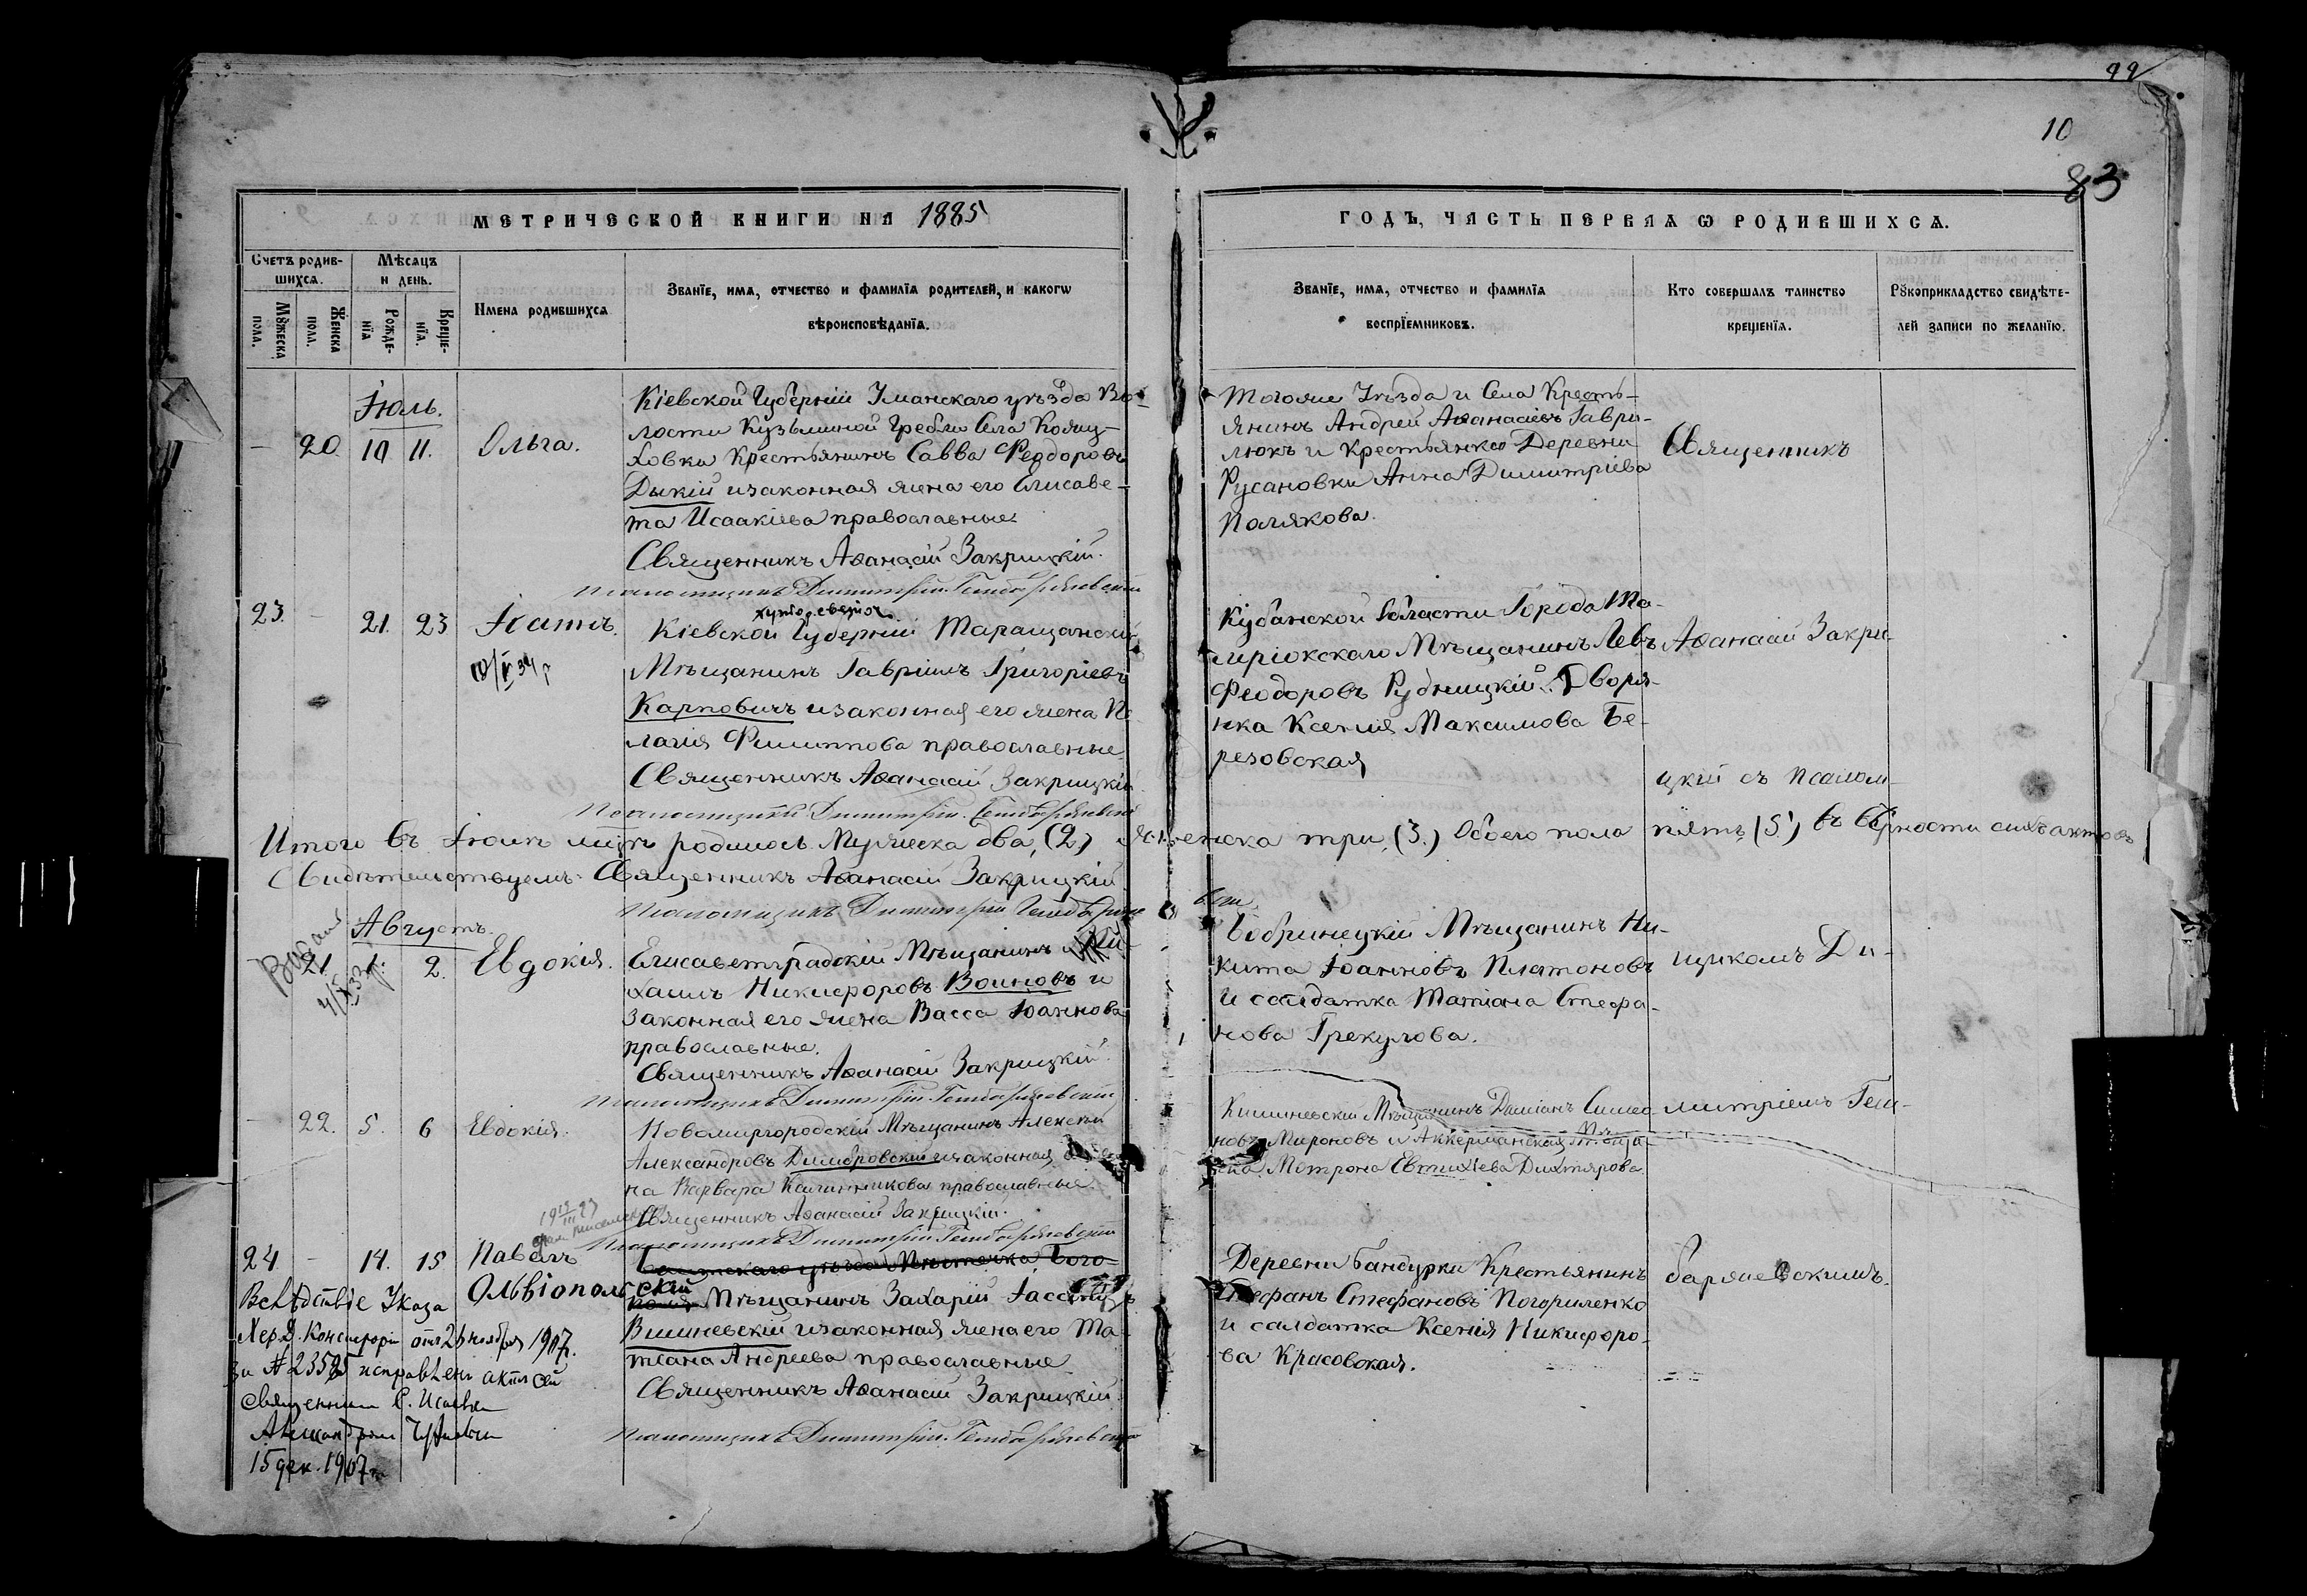 99
10
83
МЕТРИЧЕСКОЙ КНИГИ НА 1885
ГОДЪ, ЧАСТЬ ПЕРВАЯ Ѡ РОДИВШИХСѦ.
Счетъ родив-
шихсѧ.
Мѣсѧцъ
и день.
Мꙋжеска
пола.
Женска
пола.
Рожде-
нїѧ
Креще-
нїѧ.
Имена родившихсѧ
Званїе, имѧ, отчество и фамилїѧ родителей, и какогѡ
вѣроисповѣданїѧ.
Званїе, имѧ, отчество и фамилїѧ
воспрїемниковъ.
Кто совершалъ таинство
крещенїѧ.
Рꙋкоприкладство свидѣте-
лей записи по желанїю.
Іюль.
20. 10 11. Ольга.
Кіевской Губерніи Уманскаго уѣзда Во-
лости Кузьминой Гребли Села
ховки Крестьянинъ Савва Феодоровъ
Дыкій и законная жена его Елисаве-
та Исаакіева православные.
Священникъ Аѳанасій Закрицкій.
Псаломщикъ Димитрій
Тогоже Уѣзда и Села Кресть-
янинъ Андрей Аѳанасіевъ Гаври-
люкъ и Крестьянка Деревни
Русановки Анна Димитріева
Полякова.
Священникъ
23. – 21. 23 Іоаннъ.
Кіевской Губерніи Таращанскій
Мѣщанинъ Гавріилъ Григоріевъ
Карповичъ и законная его жена Пе
лагія Филиппова православные
Священникъ Аѳанасій Закрицкій
Псаломщикъ Димитрій
Кубанской Области Города Те-
мріокскаго Мѣщанинъ Левъ
Феодоровъ Рудницкій и Дворя-
нка Ксенія Максимова Бе-
резовская
Аѳанасій Закри-
цкій съ Псалом-
Итого въ Іюлѣ м-цѣ родилось Мужеска два, (2) Женска три, (3.) Обоего пола пять (5) въ вѣрности сихъ актовъ
Свидѣтельствуемъ: Священникъ Аѳанасій Закрицкій
Псаломщикъ Димитрій
Августъ.
21. 1. 2. Евдокія.
Елисаветградскій Мѣщанинъ Ми-
хаилъ Никифоровъ Воиновъ и
законная его жена Васса Іоаннова
православные.
Священникъ Аѳанасій Закрицкій.
Псаломщикъ Димитрій
Бобринецкій Мѣщанинъ Ни-
кита Іоанновъ Платоновъ
и солдатка Татіана Стефа-
нова Грекулова.
щикомъ Ди-
22. 5. 6 Евдокія.
Новомиргородскій Мѣщанинъ Алексѣй
Александровъ Димбровскій и законная его же
на Варвара Калинникова православные.
Священникъ Аѳанасій Закрицкій.
Псаломщикъ Димитрій
Кишиневскій Мѣщанинъ Даміанъ Симео-
новъ Мироновъ и Аккерманская Мѣща-
нка Мотрона Евтихіева Дихтярова.
митріемъ Гем-
24. – 14. 15 Павелъ
Балтскаго уѣзда Мѣстечка Бого-
Ольвіопольскій
Мѣщанинъ Захарій
Вишневскій и законная жена его Та-
тіана Андреева православные
Священникъ Аѳанасій Закрицкій.
Псаломщикъ Димитрій
Деревни Бандурки Крестьянинъ
Стефанъ Стефановъ Погориленко
и солдатка Ксенія Никифоро-
ва Красовская.
баржевскимъ.
Вслѣдствіе Указа
Хер. Д. Консисторіи отъ 26 ноября 1907.
за № 23585 исправленъ актъ сей
Священникъ С. Исаевъ
15 дек. 1907